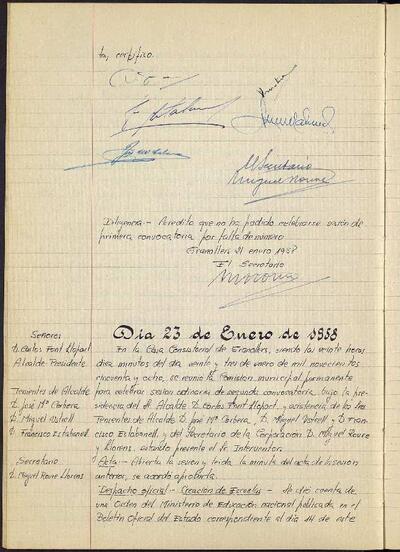 to, certifico.
El Secretario
Miguel Roure
Diligencia.- Acredito que no ha podido celebrarse sesión de
primera convocatoria por falta de número
Granollers 21 enero 1958
El Secretario
Día 23 de Enero de 1958
Señores
D. Carlos Font Llopart
Alcalde-Presidente
Tenientes de Alcalde
D. José Mª Corbera
D. Miguel Ustrell
D. Francisco Estabanell
Secretario
D. Miguel Roure Llorens
En la Casa Consistorial de Granollers, siendo las veinte horas
diez minutos del día veinte y tres de enero de mil novecientos
cincuenta y ocho, se reunió la Comisión municipal permanente
para celebrar sesión ordinaria de segunda convocatoria, bajo la pre-
sidencia del Sr. Alcalde D. Carlos Font Llopart, y asistencia de los tres
Tenientes de Alcalde D. José Mª Corbera, D. Miguel Ustrell y D. Fran-
cisco Estabanell, y del Secretario de la Corporación D. Miguel Roure
y Llorens, estando presente el Sr. Interventor.
Acta.- Abierta la sesión y leída la minuta del acta de la sesión
anterior, se acordó aprobarla.
Despacho oficial.- Creación de Escuelas.- Se dió cuenta de
una Orden del Ministerio de Educación nacional publicada en el
Boletín Oficial del Estado correspondiente al día 14 de este